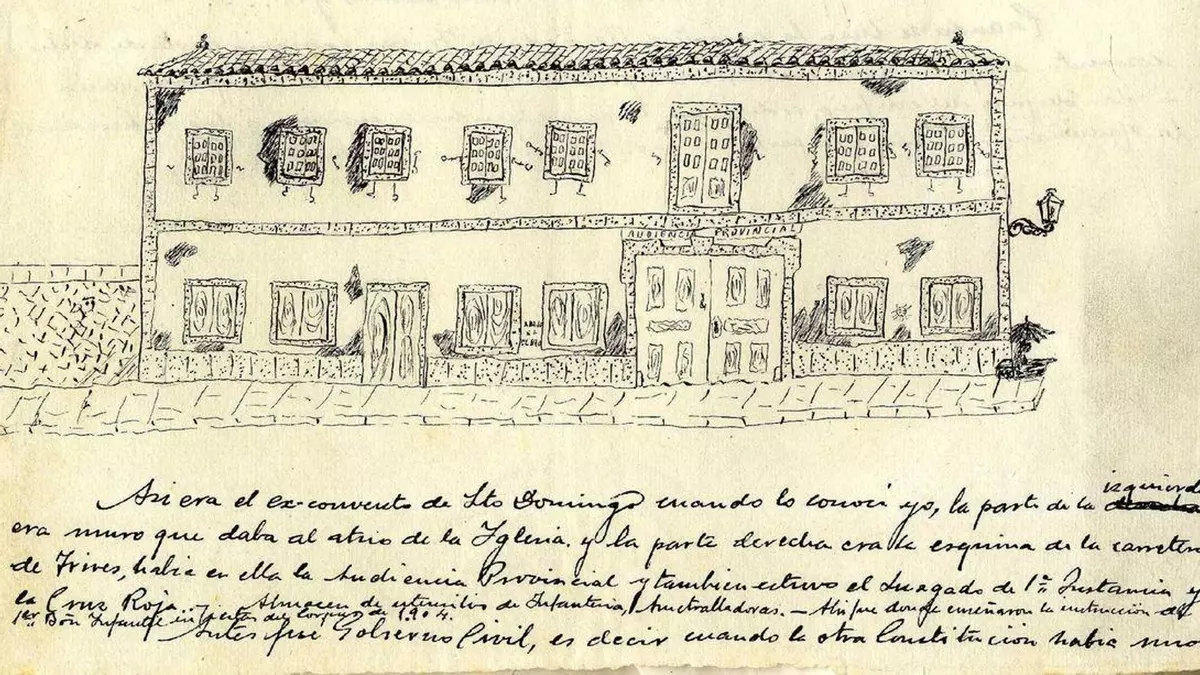 AUDIENCIA PROVINCIAL
izquierd
Asi era el ex-convento de Sto Domingo cuando lo conoci yo, la parte de la
era muro que daba al atrio de la Iglesia. y la parte derecha era la esquina de la carretera
de Trives, habia en ella la Audiencia Provincial y tambien estuvo el Juzgado de 1ª Instancia y
la Cruz Roja. Almacen de utensilios de Infanteria, Ametralladoras. - Ahi fue donde enseñaron la instruccion del
1er Bon Infantil en fiestas del Corpus de 1904.
Antes fue Gobierno Civil, es decir cuando la otra Constitucion habia